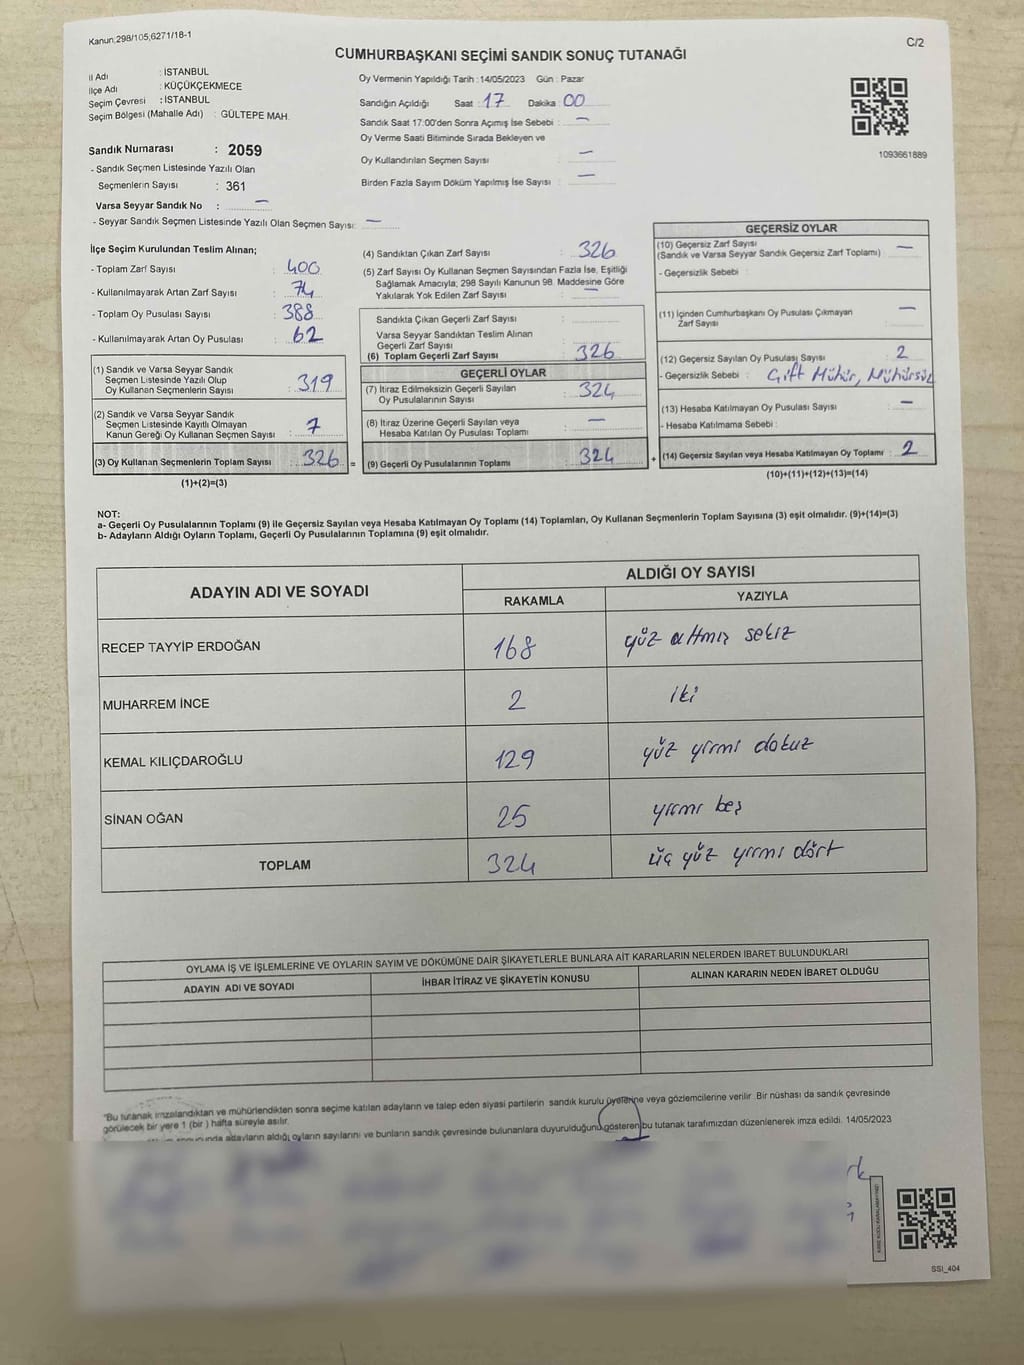 Kanun;298/105,6271/18-1
C/2
CUMHURBAŞKANI SEÇİMİ SANDIK SONUÇ TUTANAĞI
İl Adı : İSTANBUL
İlçe Adı : KÜÇÜKÇEKMECE
Seçim Çevresi : İSTANBUL
Seçim Bölgesi (Mahalle Adı) : GÜLTEPE MAH.
Sandık Numarası : 2059
- Sandık Seçmen Listesinde Yazılı Olan
Seçmenlerin Sayısı : 361
Varsa Seyyar Sandık No : —
- Seyyar Sandık Seçmen Listesinde Yazılı Olan Seçmen Sayısı: —
Oy Vermenin Yapıldığı Tarih : 14/05/2023 Gün : Pazar
Sandığın Açıldığı Saat : 17 Dakika : 00
Sandık Saat 17:00'den Sonra Açımış İse Sebebi : —
Oy Verme Saati Bitiminde Sırada Bekleyen ve
Oy Kullandırılan Seçmen Sayısı : —
Birden Fazla Sayım Döküm Yapılmış İse Sayısı : —
1093661889
İlçe Seçim Kurulundan Teslim Alınan;
- Toplam Zarf Sayısı : 400
- Kullanılmayarak Artan Zarf Sayısı : 74
- Toplam Oy Pusulası Sayısı : 388
- Kullanılmayarak Artan Oy Pusulası : 62
(1) Sandık ve Varsa Seyyar Sandık
Seçmen Listesinde Yazılı Olup
Oy Kullanan Seçmenlerin Sayısı : 319
(2) Sandık ve Varsa Seyyar Sandık
Seçmen Listesinde Kayıtlı Olmayan
Kanun Gereği Oy Kullanan Seçmen Sayısı : 7
(3) Oy Kullanan Seçmenlerin Toplam Sayısı : 326 =
(1)+(2)=(3)
(4) Sandıktan Çıkan Zarf Sayısı : 326
(5) Zarf Sayısı Oy Kullanan Seçmen Sayısından Fazla İse, Eşitliği
Sağlamak Amacıyla; 298 Sayılı Kanunun 98. Maddesine Göre
Yakılarak Yok Edilen Zarf Sayısı : —
Sandıkta Çıkan Geçerli Zarf Sayısı :
Varsa Seyyar Sandıktan Teslim Alınan
Geçerli Zarf Sayısı :
(6) Toplam Geçerli Zarf Sayısı : 326
GEÇERLİ OYLAR
(7) İtiraz Edilmeksizin Geçerli Sayılan
Oy Pusulalarının Sayısı : 324
(8) İtiraz Üzerine Geçerli Sayılan veya
Hesaba Katılan Oy Pusulası Toplamı : —
(9) Geçerli Oy Pusulalarının Toplamı : 324 +
GEÇERSİZ OYLAR
(10) Geçersiz Zarf Sayısı
(Sandık ve Varsa Seyyar Sandık Geçersiz Zarf Toplamı) : —
- Geçersizlik Sebebi :
(11) İçinden Cumhurbaşkanı Oy Pusulası Çıkmayan
Zarf Sayısı : —
(12) Geçersiz Sayılan Oy Pusulası Sayısı : 2
- Geçersizlik Sebebi : Çift Mühür, Mühürsüz
(13) Hesaba Katılmayan Oy Pusulası Sayısı : —
- Hesaba Katılmama Sebebi :
(14) Geçersiz Sayılan veya Hesaba Katılmayan Oy Toplamı : 2
(10)+(11)+(12)+(13)=(14)
NOT:
a- Geçerli Oy Pusulalarının Toplamı (9) ile Geçersiz Sayılan veya Hesaba Katılmayan Oy Toplamı (14) Toplamları, Oy Kullanan Seçmenlerin Toplam Sayısına (3) eşit olmalıdır. (9)+(14)=(3)
b- Adayların Aldığı Oyların Toplamı, Geçerli Oy Pusulalarının Toplamına (9) eşit olmalıdır.
ADAYIN ADI VE SOYADI
ALDIĞI OY SAYISI
RAKAMLA YAZIYLA
RECEP TAYYİP ERDOĞAN 168 yüz altmış sekiz
MUHARREM İNCE 2 iki
KEMAL KILIÇDAROĞLU 129 yüz yirmi dokuz
SİNAN OĞAN 25 yirmi beş
TOPLAM 324 üç yüz yirmi dört
OYLAMA İŞ VE İŞLEMLERİNE VE OYLARIN SAYIM VE DÖKÜMÜNE DAİR ŞİKAYETLERLE BUNLARA AİT KARARLARIN NELERDEN İBARET BULUNDUKLARI
ADAYIN ADI VE SOYADI İHBAR İTİRAZ VE ŞİKAYETİN KONUSU ALINAN KARARIN NEDEN İBARET OLDUĞU
*Bu tutanak imzalandıktan ve mühürlendikten sonra seçime katılan adayların ve talep eden siyasi partilerin sandık kurulu üyelerine veya gözlemcilerine verilir. Bir nüshası da sandık çevresinde
görülecek bir yere 1 (bir ) hafta süreyle asılır.
adayların aldığı oyların sayılarını ve bunların sandık çevresinde bulunanlara duyurulduğunu gösteren bu tutanak tarafımızdan düzenlenerek imza edildi. 14/05/2023
SSI_404